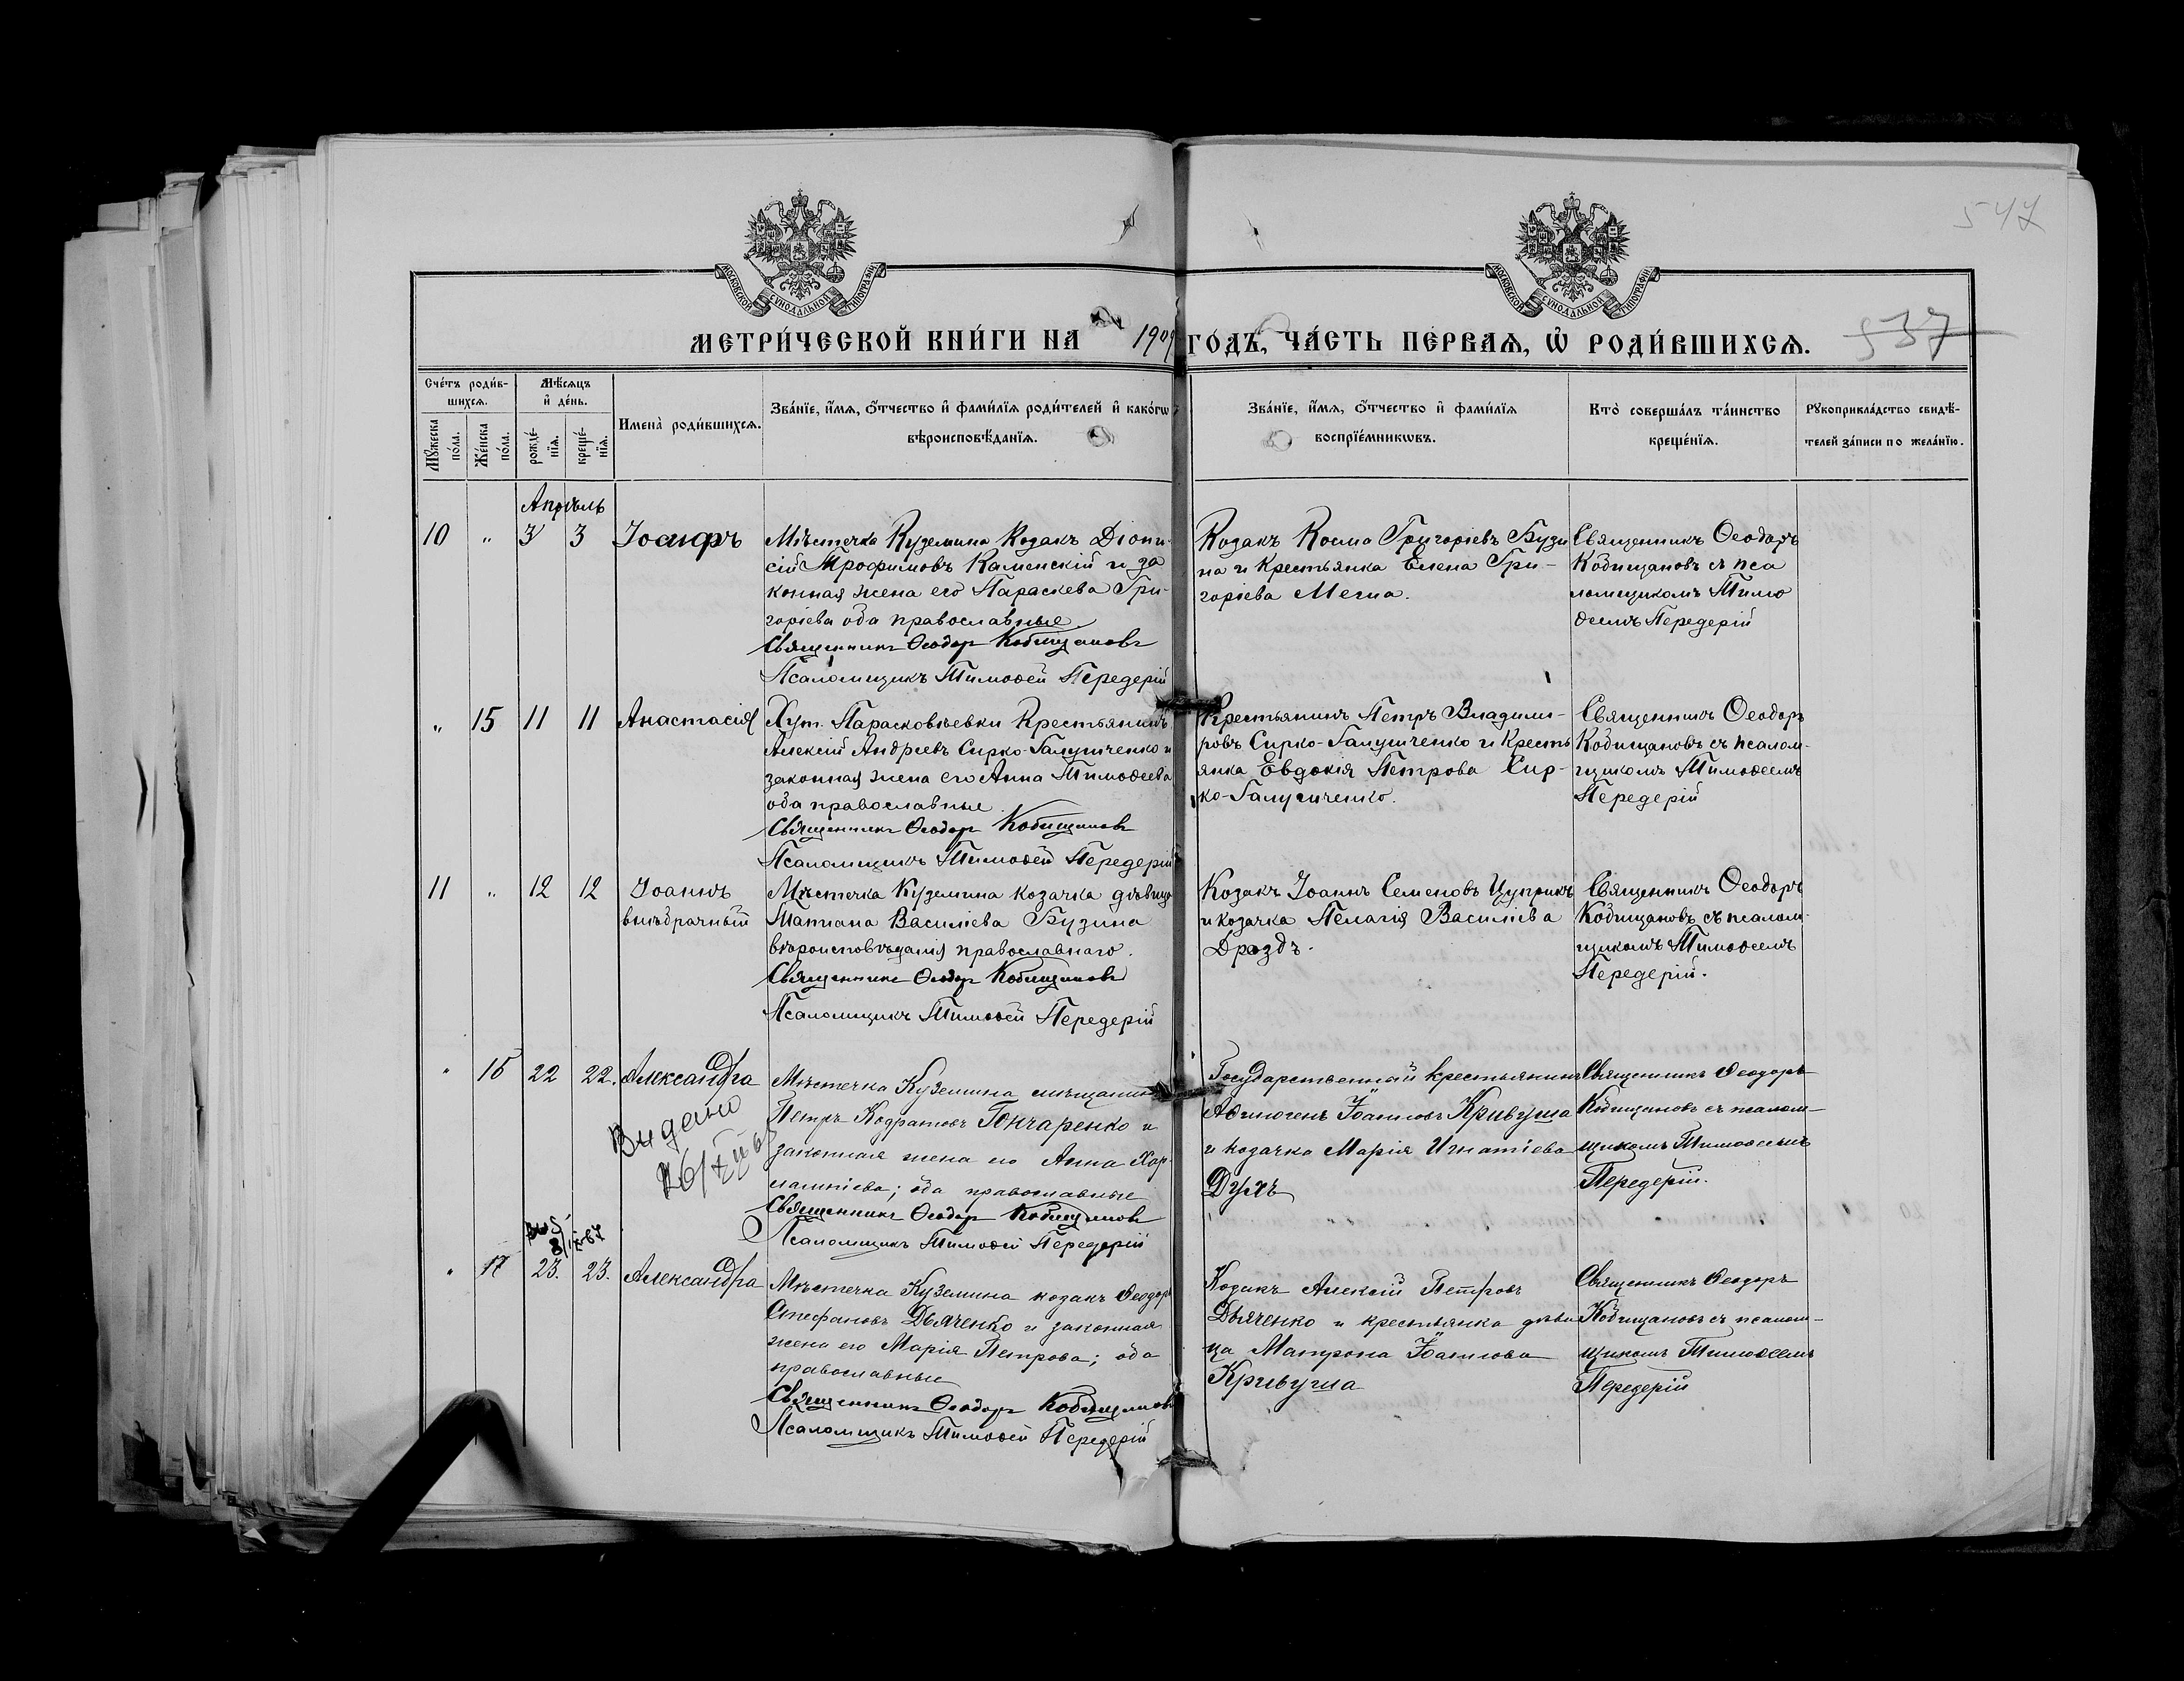 547
МОСКОВСКОЙ СѴНОДАЛЬНОЙ ТИПОГРАФІИ
МОСКОВСКОЙ СѴНОДАЛЬНОЙ ТИПОГРАФІИ
МЕТРИ́ЧЕСКОЙ КНИ́ГИ НА 1909 ГОДЪ, ЧА́СТЬ ПЕ́РВАѦ, Ѡ҆ РОДИ́ВШИХСѦ.
537
Сче́тъ роди́в-
шихсѧ.
Мꙋ́жеска по́ла.
Же́нска по́ла.
Мѣ́сѧцъ
и҆ де́нь.
рожде́-
нїѧ.
креще́-
нїѧ.
Имена̀ роди́вшихсѧ.
Зва́нїе, и҆́мѧ, ѻ҆́тчество и҆ фами́лїѧ роди́телей и҆ како́гѡ
вѣроисповѣ́данїѧ.
Зва́нїе, и҆́мѧ, ѻ҆́тчество и҆ фами́лїѧ
воспрїе́мникѡвъ.
Кто̀ соверша́лъ та́инство
креще́нїѧ.
Рꙋкоприкла́дство свидѣ́-
телей за́писи по жела́нїю.
Апрѣль
10 " 3 3 Іосифъ
Мѣстечка Куземина Козакъ Діони-
сій Трофимовъ Каменскій и за
конная жена его Параскева Гри-
горіева оба православные
Священникъ Ѳеодоръ Кобищановъ
Псаломщикъ Тимоѳей Передерій
Козакъ Косма Григоріевъ Бузи
на и Крестьянка Елена Гри-
горіева
Священникъ Ѳеодоръ
Кобищановъ съ пса
ломщикомъ Тимо
ѳеемъ Передерій
" 15 11 11 Анастасія
Хут. Парасковѣевки Крестьянинъ
Алексій Андреевъ Сирко-Галушченко и
законная жена его Анна Тимоѳеева
оба православные
Священникъ Ѳеодоръ Кобищановъ
Псаломщикъ Тимоѳей Передерій
Крестьянинъ Петръ Владими-
ровъ Сирко-Галушченко и Кресть
янка Евдокія Петрова Сир-
ко-Галушченко.
Священникъ Ѳеодоръ
Кобищановъ съ псалом-
щикомъ Тимоѳеемъ
Передерій
11 " 12 12 Іоаннъ
внѣбрачный
Мѣстечка Куземина козачка дѣвица
Татіана Василіева Бузина
вѣроисповѣданія православнаго.
Священникъ Ѳеодоръ Кобищановъ
Псаломщикъ Тимоѳей Передерій
Козакъ Іоаннъ Семеновъ Цуприкъ
и козачка Пелагія Василіева
Дроздъ.
Священникъ Ѳеодоръ
Кобищановъ съ псалом-
щикомъ Тимоѳеемъ
Передерій.
" 16 22 22. Александра
Видано
Мѣстечка Куземина мѣщанинъ
Петръ Кодратовъ Гончаренко и
законная жена его Анна Хар-
лампіева; оба православные
Священникъ Ѳеодоръ Кобищановъ
Псаломщикъ Тимоѳей Передерій
Государственный крестьянинъ
Аѳиногенъ Іоанновъ Кривуша
и козачка Марія Игнатіева
Священникъ Ѳеодоръ
Кобищановъ съ псалом-
щикомъ Тимоѳеемъ
Передерій.
" 17 23. 23. Александра
Мѣстечка Куземина козакъ Ѳеодоръ
Стефановъ Дьяченко и законная
жена его Марія Петрова; оба
православные
Священникъ Ѳеодоръ Кобищановъ
Псаломщикъ Тимоѳей Передерій
Козакъ Алексій Петровъ
Дьяченко и крестьянка дѣви
ца Матрона Іоаннова
Кривуша
Священникъ Ѳеодоръ
Кобищановъ съ псалом-
щикомъ Тимоѳеемъ
Передерій